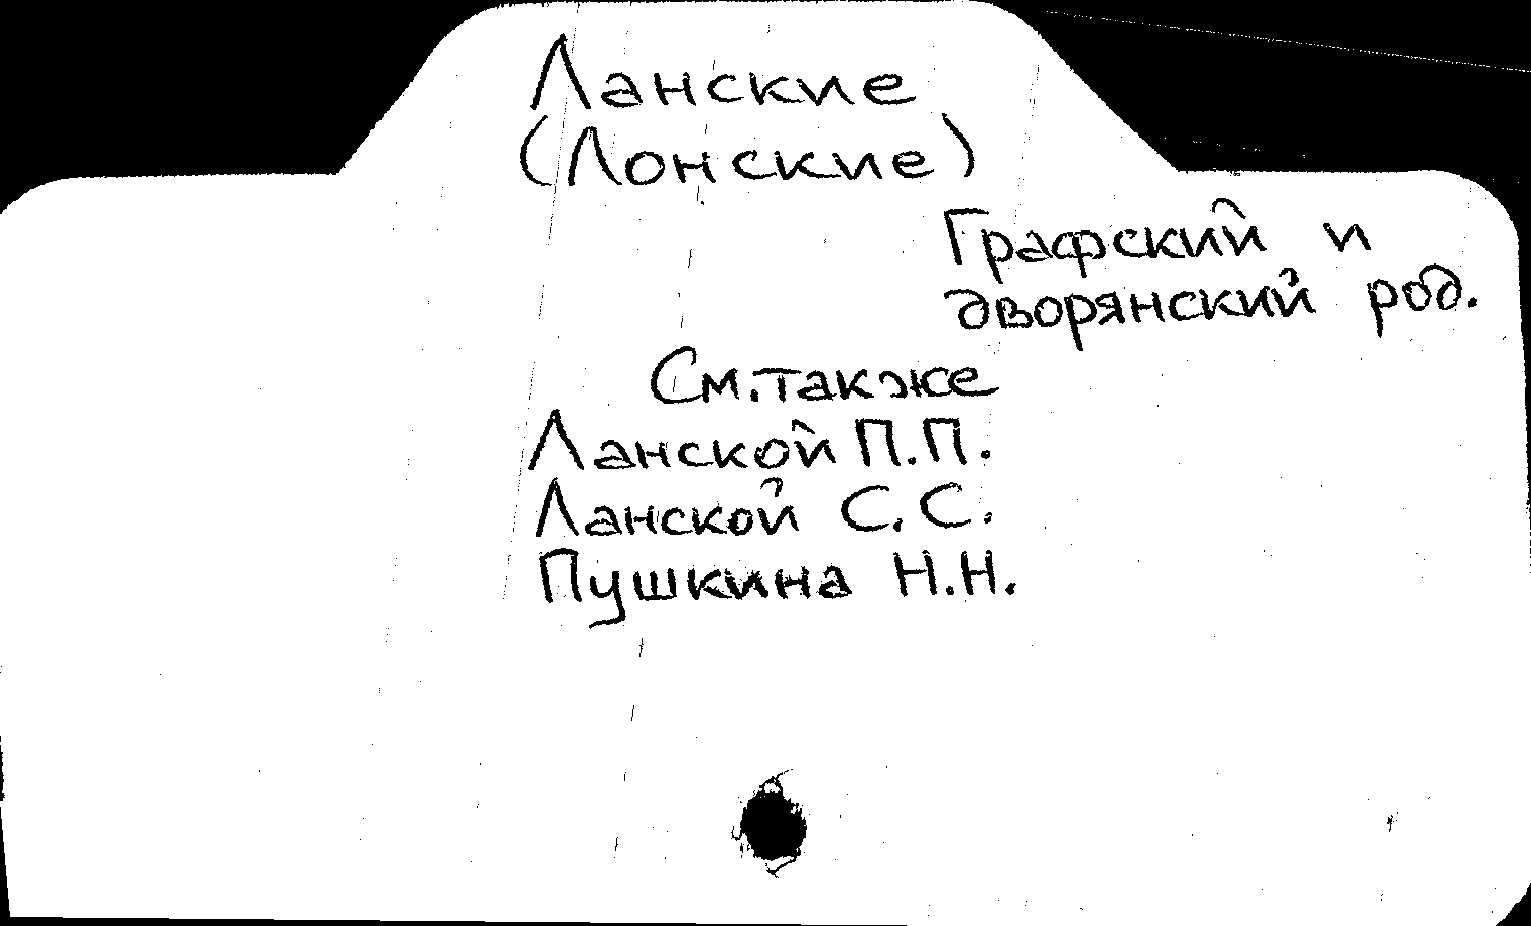 Ланские
(Лонские)
Графский и
дворянский род.
См. также
Ланской П.П.
Ланской С.С.
Пушкина Н.Н.